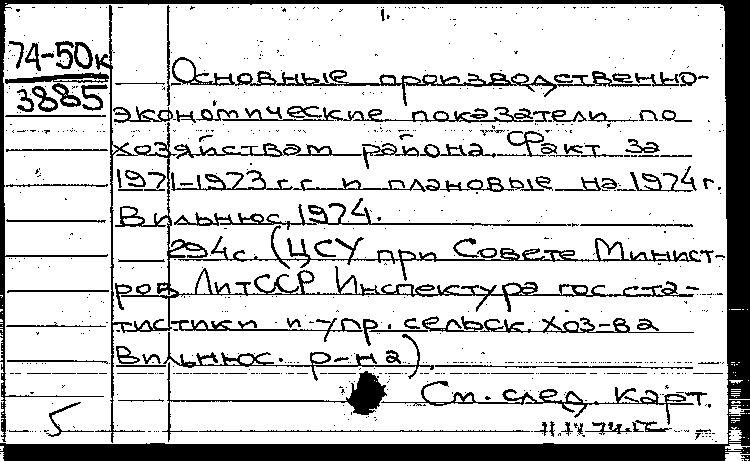 1.
74-50к
3885
Основные производственно-
экономические показатели по
хозяйствам района. Факт за
1971-1973 г.г. и плановые на 1974 г.
Вильнюс, 1974.
294 с. (ЦСУ при Совете Минист-
ров ЛитССР. Инспектура гос. ста-
тистики и упр. сельск. хоз-ва
Вильнюс. р-на).
См. след. карт.
5
11.IX 74